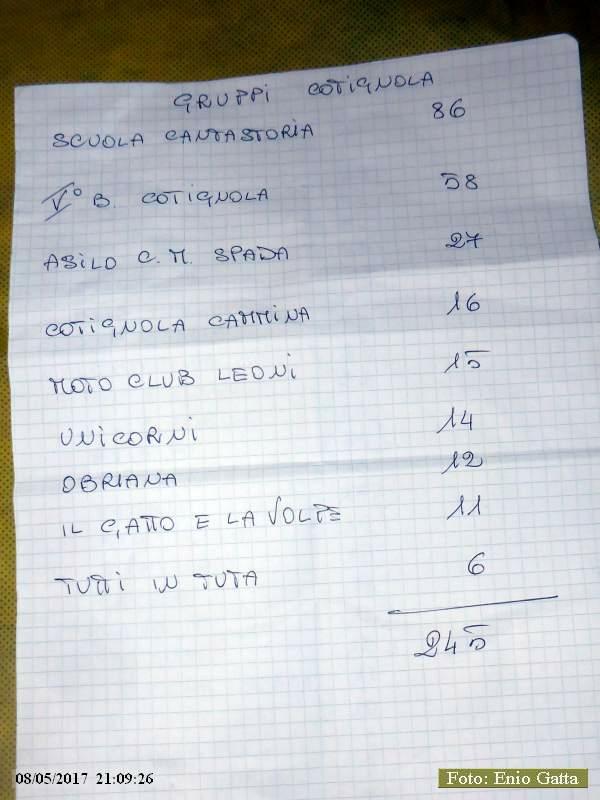 GRUPPI COTIGNOLA
SCUOLA CANTASTORIA 86
V° B. COTIGNOLA 58
ASILO C. M. SPADA 27
COTIGNOLA CAMMINA 16
MOTO CLUB LEONI 15
UNICORNI 14
OBRIANA 12
IL GATTO E LA VOLPE 11
TUTTI IN TUTA 6
245
08/05/2017 21:09:26
Foto: Enio Gatta